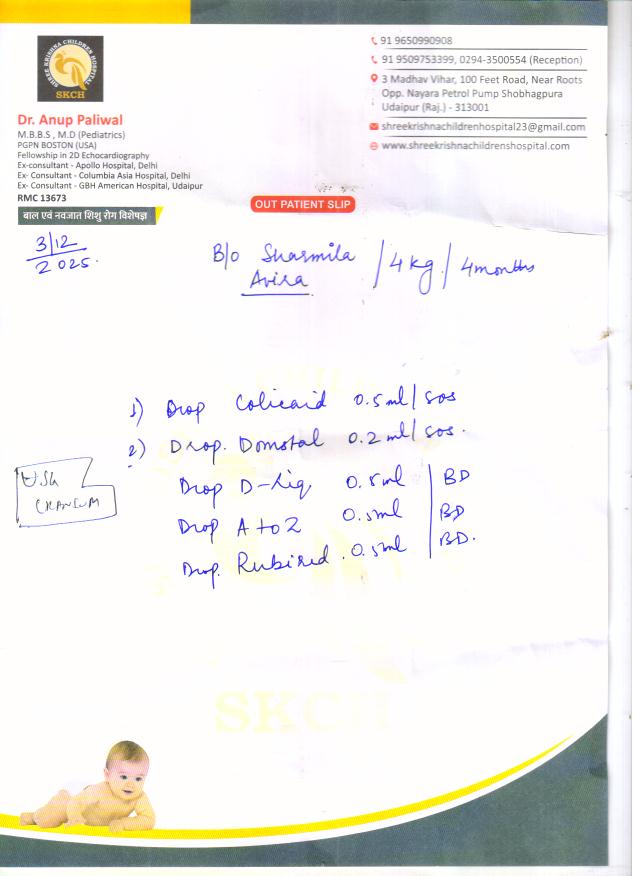 SHREE KRISHNA CHILDREN HOSPITAL
SKCH
Dr. Anup Paliwal
M.B.B.S , M.D (Pediatrics)
PGPN BOSTON (USA)
Fellowship in 2D Echocardiography
Ex-consultant - Apollo Hospital, Delhi
Ex- Consultant - Columbia Asia Hospital, Delhi
Ex- Consultant - GBH American Hospital, Udaipur
RMC 13673
बाल एवं नवजात शिशु रोग विशेषज्ञ
91 9650990908
91 9509753399, 0294-3500554 (Reception)
3 Madhav Vihar, 100 Feet Road, Near Roots
Opp. Nayara Petrol Pump Shobhagpura
Udaipur (Raj.) - 313001
shreekrishnachildrenhospital23@gmail.com
www.shreekrishnachildrenshospital.com
OUT PATIENT SLIP
3/12
2025.
B/o Sharmila / 4 kg / 4 months
Avira
1) Drop Colicaid 0.5ml / SOS
2) Drop. Domstal 0.2 ml / SOS.
Drop D-Liq 0.5ml | BD
Drop A to Z 0.5ml | BD
Drop. Rubired . 0.5ml | BD.
USG
CRANIUM
SKCH